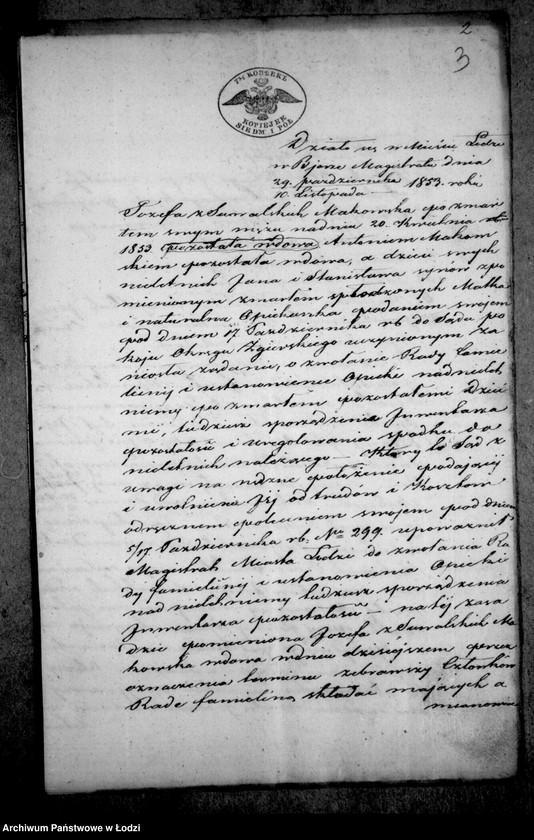 2
3
7½ КОПѢЕКЪ
KOPIEJEK
SIEDM I PÓŁ
Działo się w Mieście Łodzi
w Bjórze Magistratu dnia
29. pazdziernika
10. Listopada 1853. roku
Jozefa z Suwalskich Makowska po zmar
łem swym mężu na dniu 20. Kwietnia
1853. pozostała wdowa, Antonim Makow
skiem pozostała wdowa, a dzieci swych
nieletnich Jana i Stanisława synów z po
mienionym zmarłem spłodzonych Matka
i naturalna Opiekunka podaniem swojem
pod dniem 17. Pazdziernika rb do Sądu po
koju Okręgu Zgierskiego uczynionym za
niosła żądanie, o zwołanie Rady fame
lijnej i ustanowienie Opieki nad nielet
niemy po zmarłem pozostałemi Dzieć
mi, tudzież sporządzenia Inwentarza
pozostałości i uregulowania spadku do
nieletnich należącego – Który to Sąd z
uwagi na nędzne położenie podającej
i uwolnienia Jej od trudów i Kosztów
odręcznem poleceniem swojem pod dniem
5/17. Pazdziernika rb. No 299. upoważnił
Magistrat Miasta Łodzi do zwołania Ra
dy familijnej i ustanowienia Opieki
nad nieletniemy tudzież sporządzenia
Inwentarza pozostałości – na tej zasa
dzie pomieniona Jozefa z Suwalskich Ma
kowska wdowa w dniu dzisiejszem
oznaczenia terminu zebrawszy Członków
Radę familina składać mających a
mianowicie
Archiwum Państwowe w Łodzi